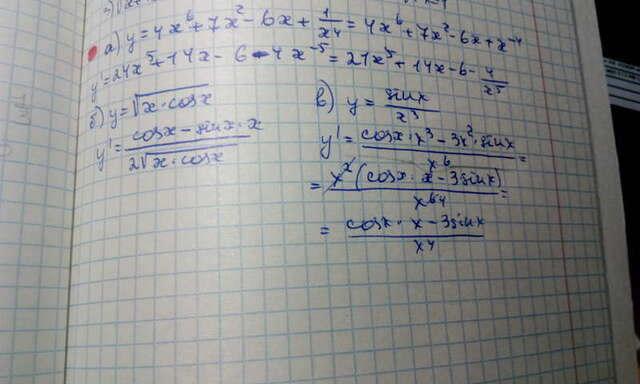 а) y = 4x⁶ + 7x² - 6x + 1/x⁴ = 4x⁶ + 7x² - 6x + x⁻⁴
y' = 24x⁵ + 14x - 6 - 4x⁻⁵ = 24x⁵ + 14x - 6 - 4/x⁵
б) y = √(x · cosx)
y' = (cosx - sinx · x)/(2√(x · cosx))
в) y = sinx/x³
y' = (cosx · x³ - 3x² · sinx)/x⁶ =
= x²(cosx · x - 3sinx)/x⁶ ⁴ =
= (cosx · x - 3sinx)/x⁴